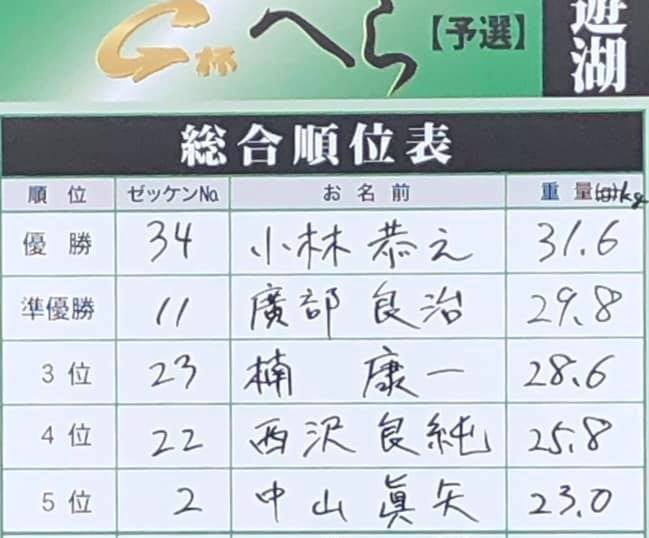 G杯 へら 【予選】
遊湖
総合順位表
順位 ゼッケンNo. お名前 重量(g)kg
優勝 34 小林恭之 31.6
準優勝 11 廣部良治 29.8
3位 23 楠康一 28.6
4位 22 西沢良純 25.8
5位 2 中山眞矢 23.0